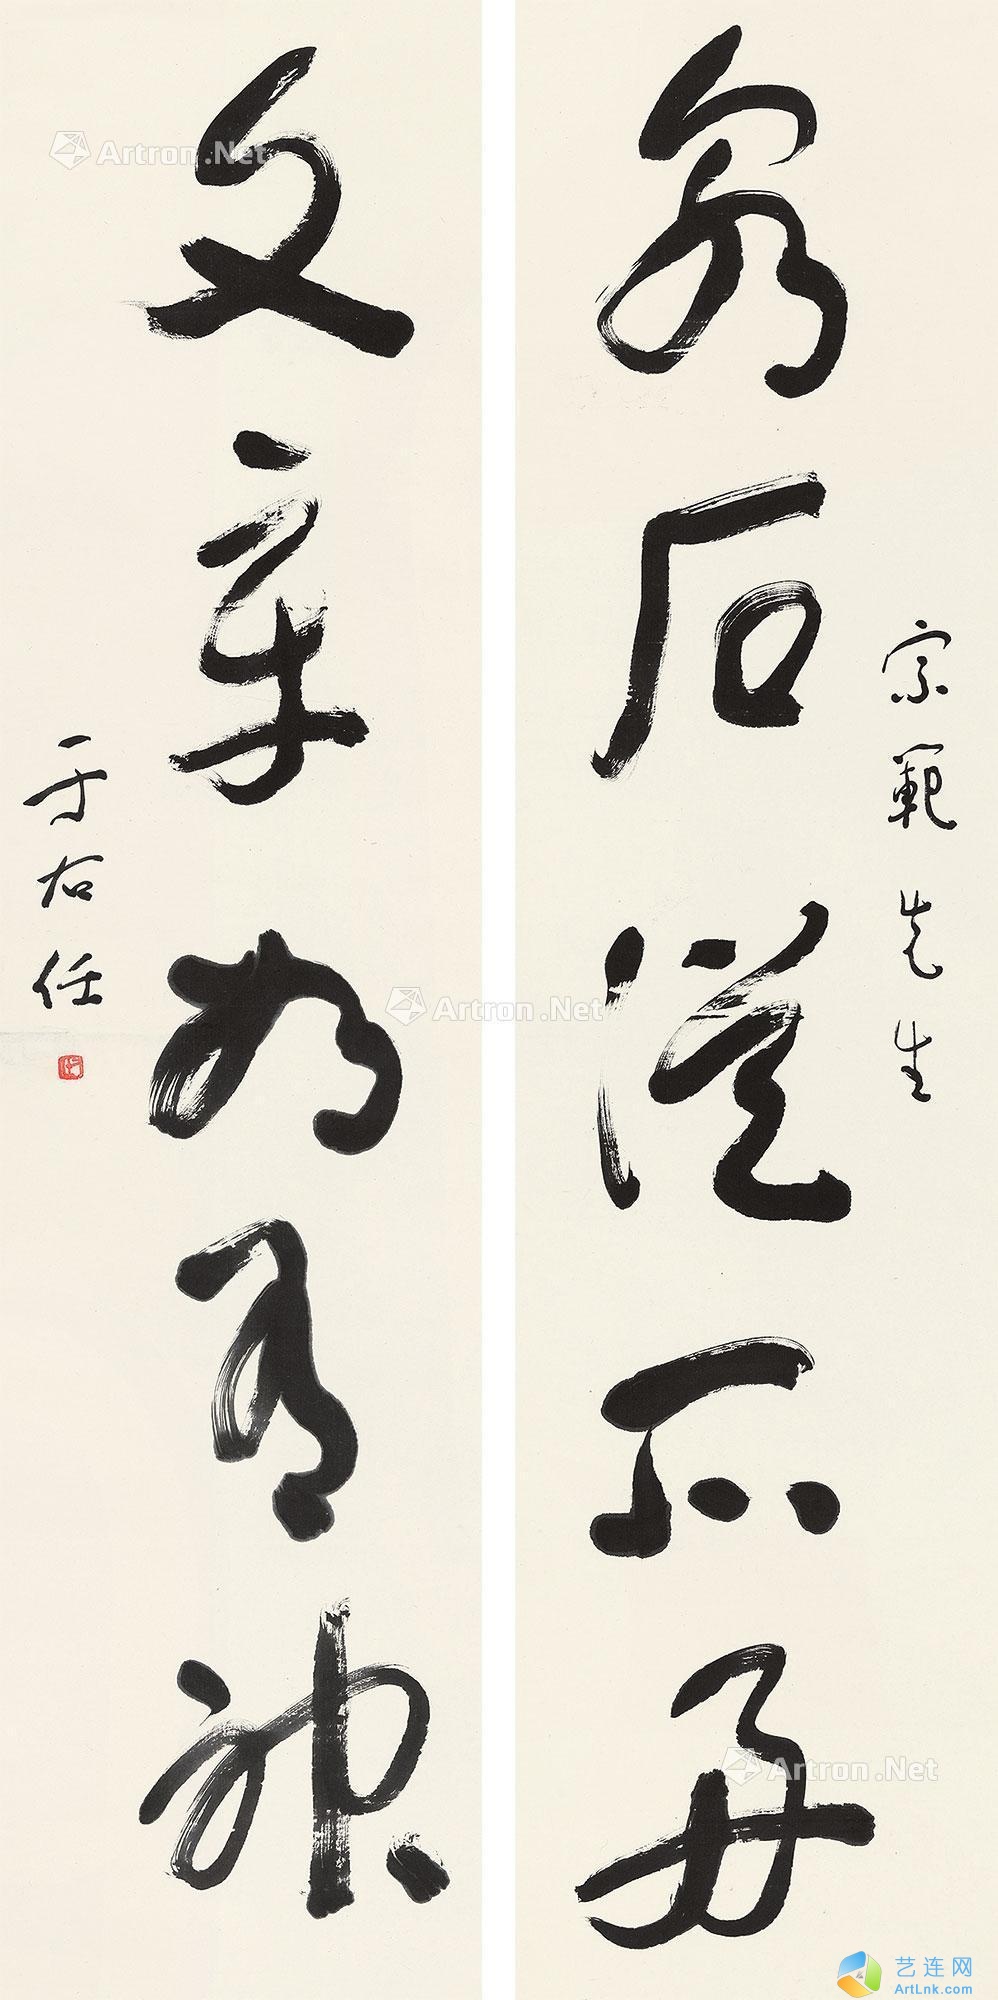 宗範先生
泉石從所好
文章如有神
于右任
Artron.Net
Artron.Net
Artron.Net
艺连网
ArtLnk.com